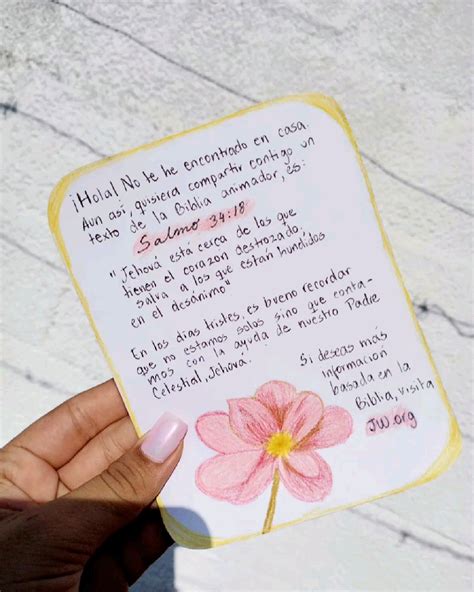 ¡Hola! No te he encontrado en casa.
Aun así, quisiera compartir contigo un
texto de la Biblia animador, es:
Salmo 34:18
"Jehová está cerca de los que
tienen el corazón destrozado;
salva a los que están hundidos
en el desánimo"
En los días tristes, es bueno recordar
que no estamos solos sino que conta-
mos con la ayuda de nuestro Padre
Celestial, Jehová.
Si deseas más
información
basada en la
Biblia, visita
JW.org